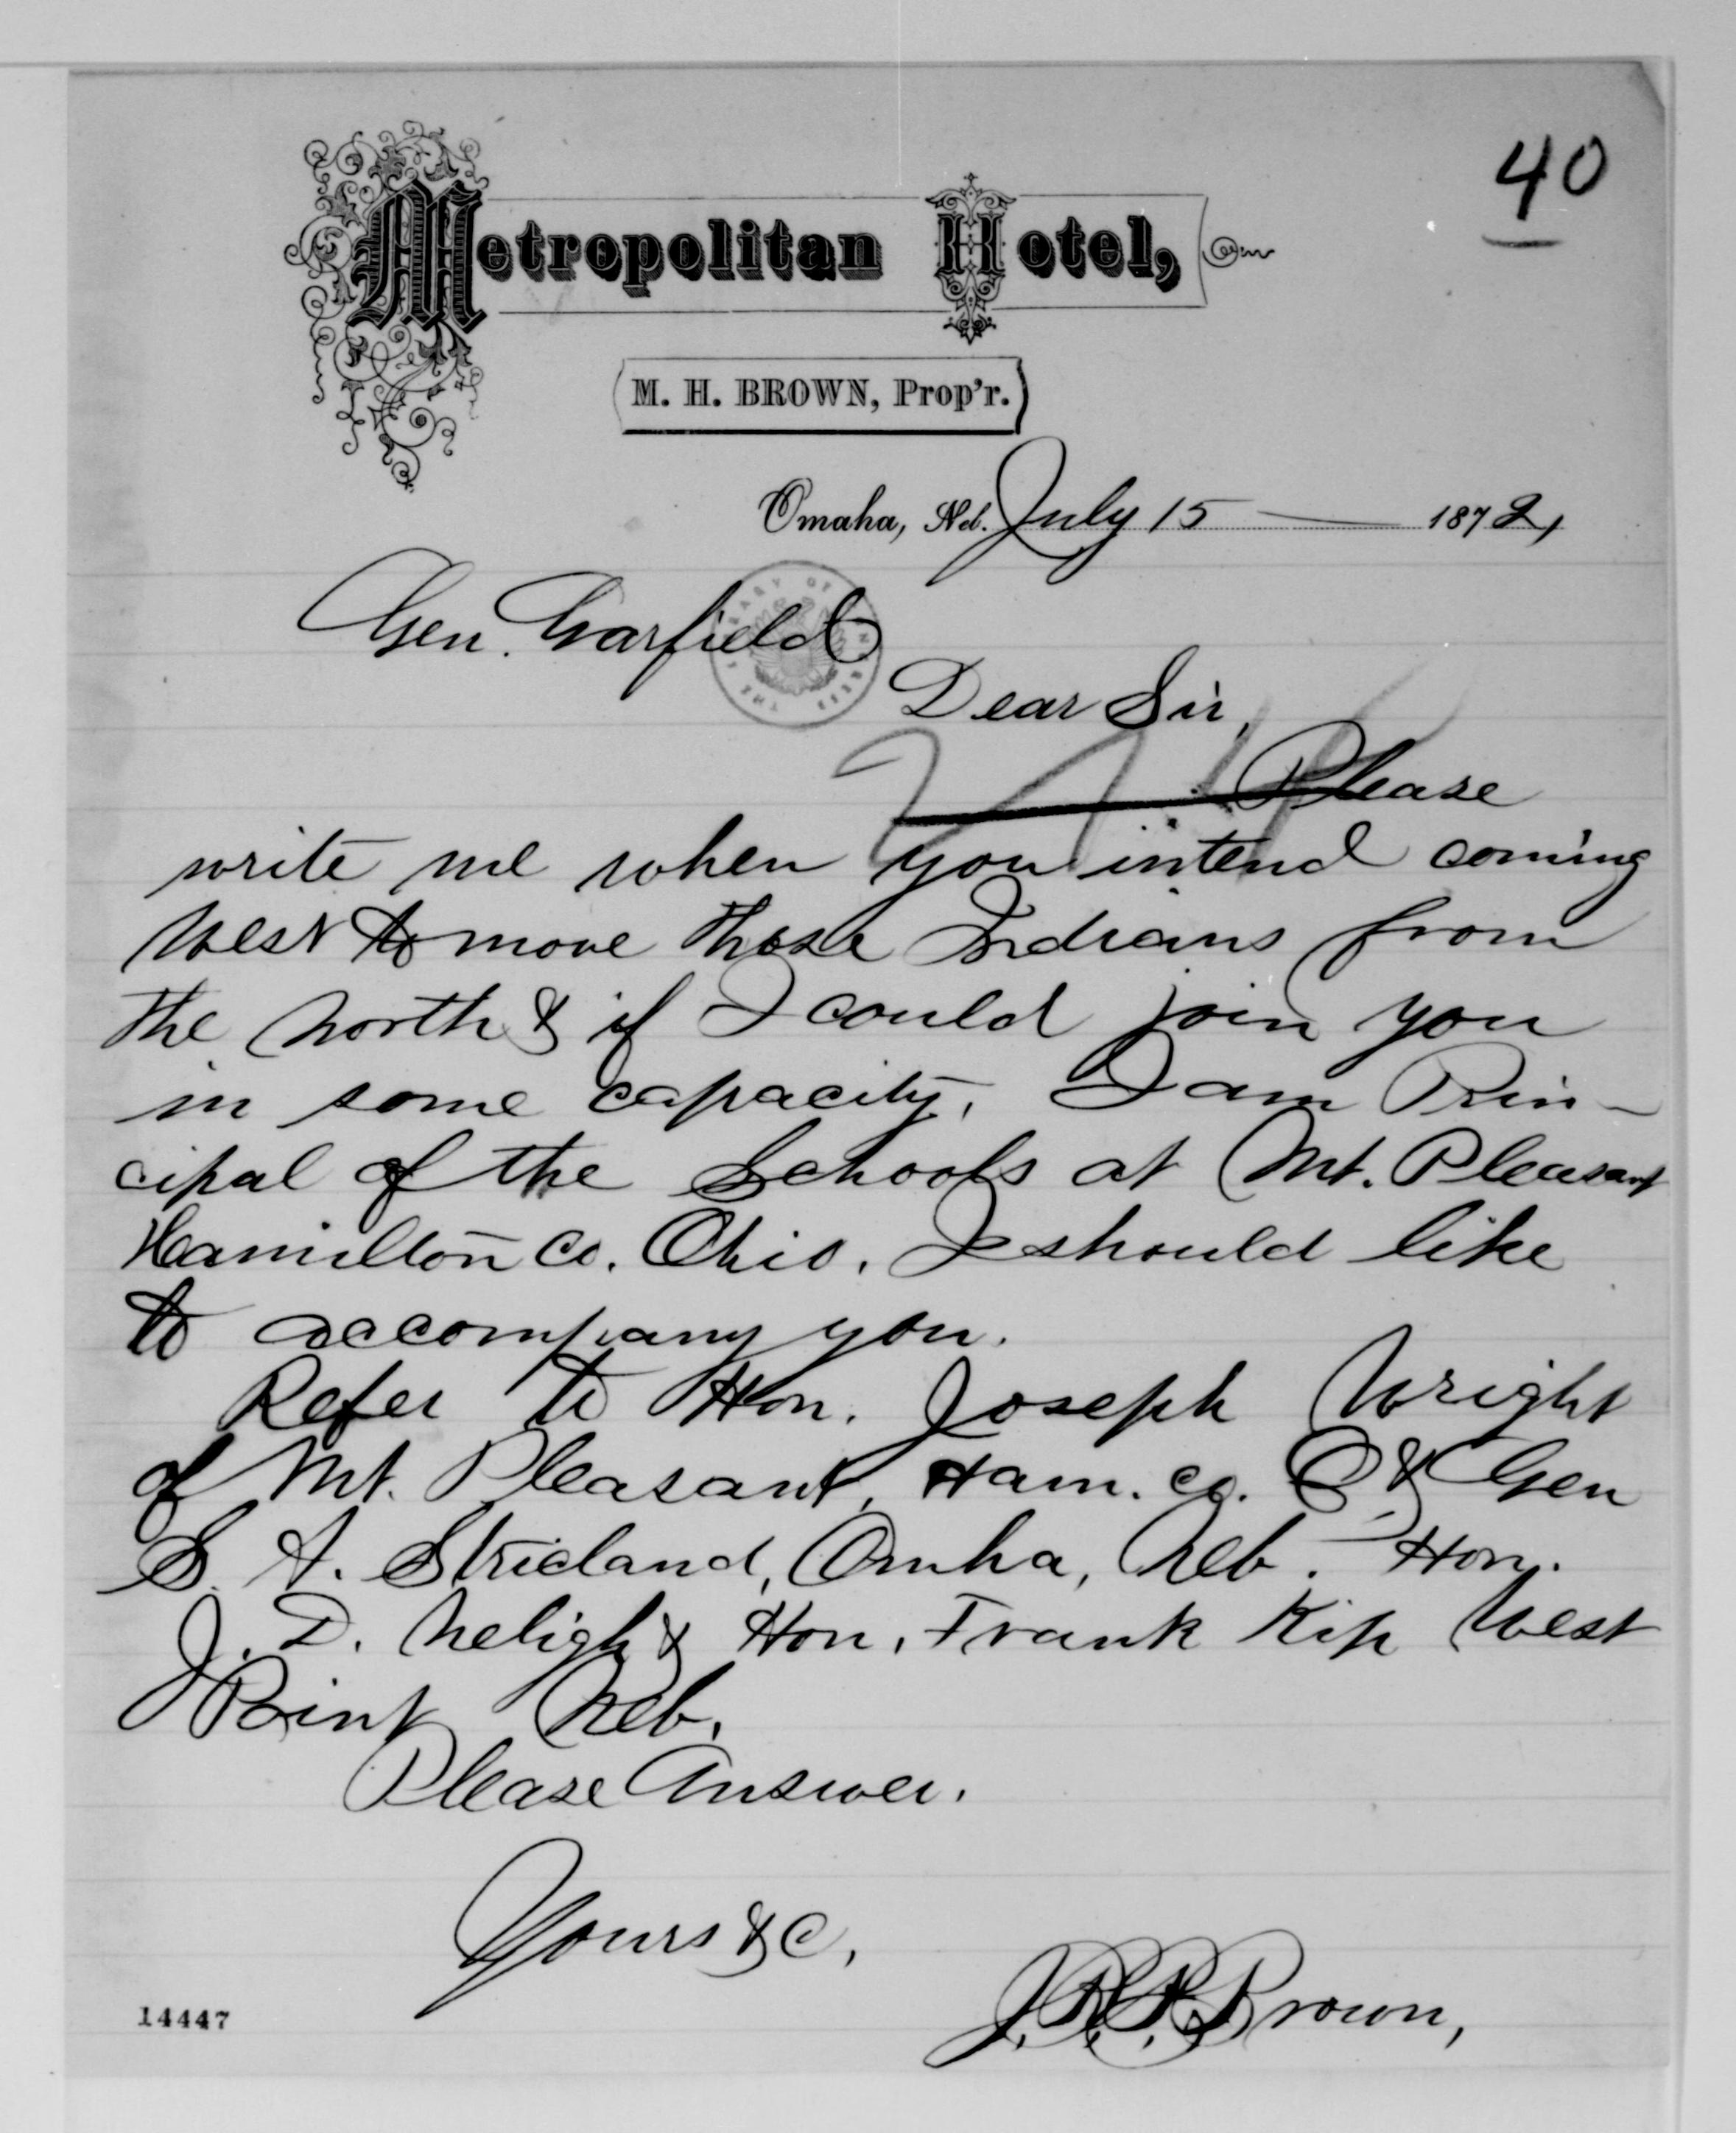 40
Metropolitan Hotel,
M. H. BROWN, Prop'r.
Omaha, Neb. July 15 — 1872,
Gen. Garfield
Dear Sir,
Please
write me when you intend coming
West to move those Indians from
the North & if I could join you
in some capacity. I am Prin-
cipal of the Schools at Mt. Pleasant
Hamilton Co. Ohio. I should like
to accompany you.
Refer to Hon. Joseph Wright
of Mt. Pleasant, Ham. Co. O & Gen
S. A. Stricland, Omha, Neb. – Hon.
J. D. Neligh & Hon. Frank Kip West
Point Neb.
Please Answer.
Yours &c,
Brown,
14447